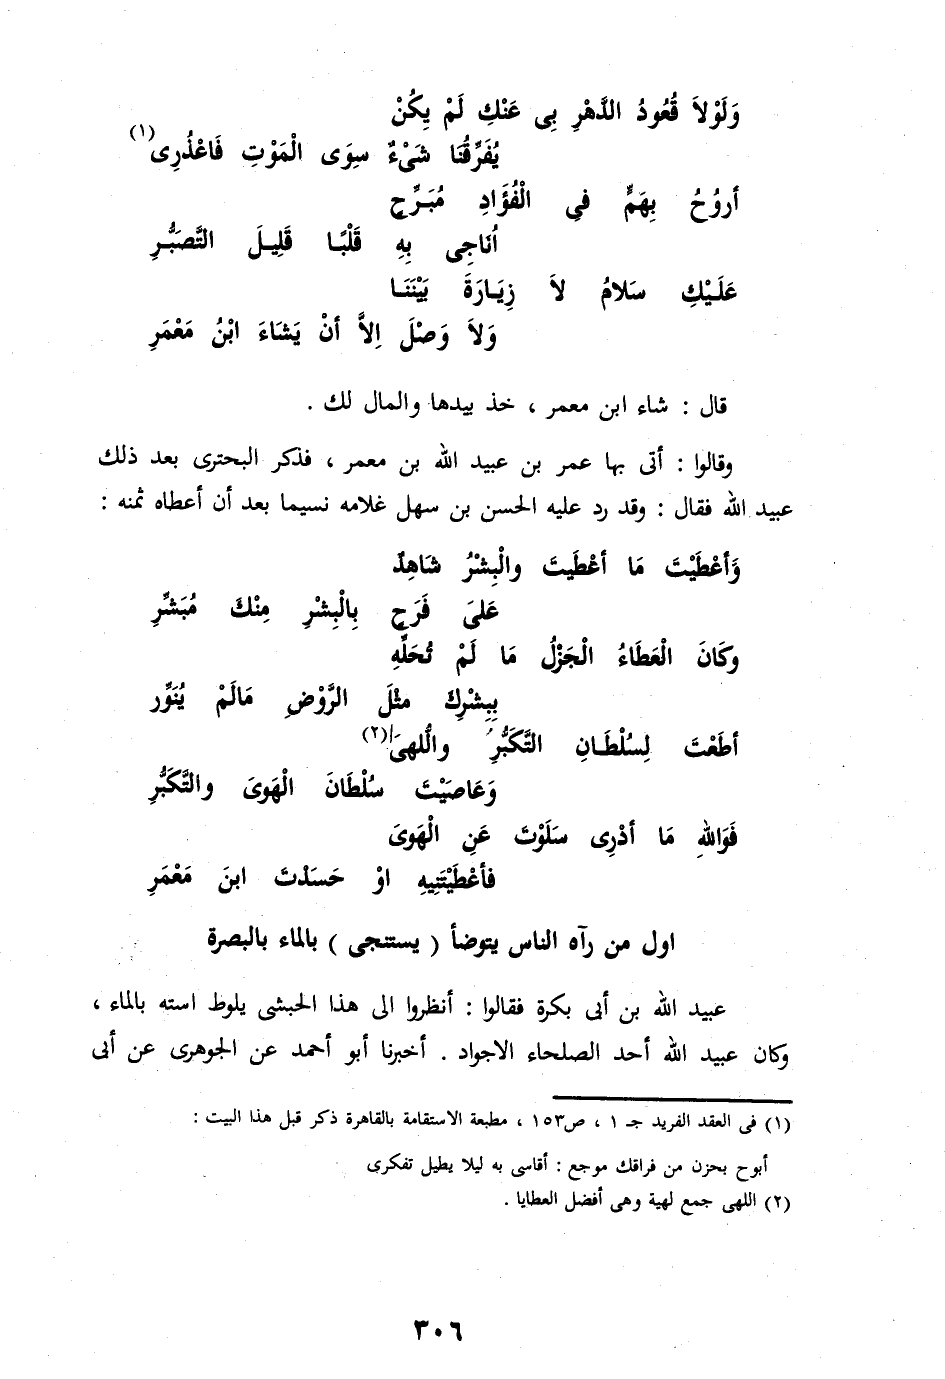 وَلَوْلاَ قُعُودُ الدَّهْرِ بِى عَنْكِ لَمْ يِكُنْ
يُفَرِّقُنَا شَىْءٌ سِوَى الْمَوْتِ فَاعْذُرِى(١)
أروُحُ بِهَمٍّ فىِ الْفُؤَادِ مُبَـرِّحٍ
اُنَاجِى بِهِ قَلْبًـا قَلِيـلَ التَّصَبُّـرِ
عَلَـيْكِ سَلامُ لاَ زِيَـارَةَ بَيْنَنَـا
وَلاَ وَصْلَ اِلاَّ أنْ يَشَاءَ ابْنُ مَعْمَرِ
قال : شاء ابن معمر ، خذ بيدها والمال لك .
وقالوا : أتى بها عمر بن عبيد الله بن معمر ، فذكر البحترى بعد ذلك
عبيد الله فقال : وقد رد عليه الحسن بن سهل غلامه نسيما بعد أن أعطاه ثمنه :
وَأعْطَيْتَ مَا أعْطَيتَ والْبِشْرُ شَاهِدٌ
عَلىَ فَرَحٍ بِالْبِشْرِ مِنْكَ مُبَشِّرِ
وكَانَ الْعَطَاءُ الْجَزْلُ مَا لَمْ تُحَلِّهِ
بِبِشْرِكَ مثْلَ الرَّوْضِ مَالَمْ يُنَوِّر
أطَعْتَ لِسُلْطَـانِ التَّكَبُّرِ واللُّهىَ(٢)
وَعَاصَيْتَ سُلْطَانَ الْهَوىَ والتَّكَبُّرِ
فَوَاللهِ مَا أدْرِى سَلَوْتَ عَنِ الْهَوىَ
فأعْطَيْتَنِيهِ اوْ حَسَدْتَ ابنَ مَعْمَرِ
اول من رآه الناس يتوضأ ( يستنجى ) بالماء بالبصرة
عبيد الله بن أبى بكرة فقالوا : أنظروا الى هذا الحبشى يلوط استه بالماء ،
وكان عبيد الله أحد الصلحاء الاجواد . أخبرنا أبو أحمد عن الجوهرى عن أبى
(١) فى العقد الفريد جـ ١ ، ص١٥٣ ، مطبعة الاستقامة بالقاهرة ذكر قبل هذا البيت :
أبوح بحزن من فراقك موجع : أقاسى به ليلا يطيل تفكرى
(٢) اللهى جمع لهية وهى أفضل العطايا .
٣٠٦